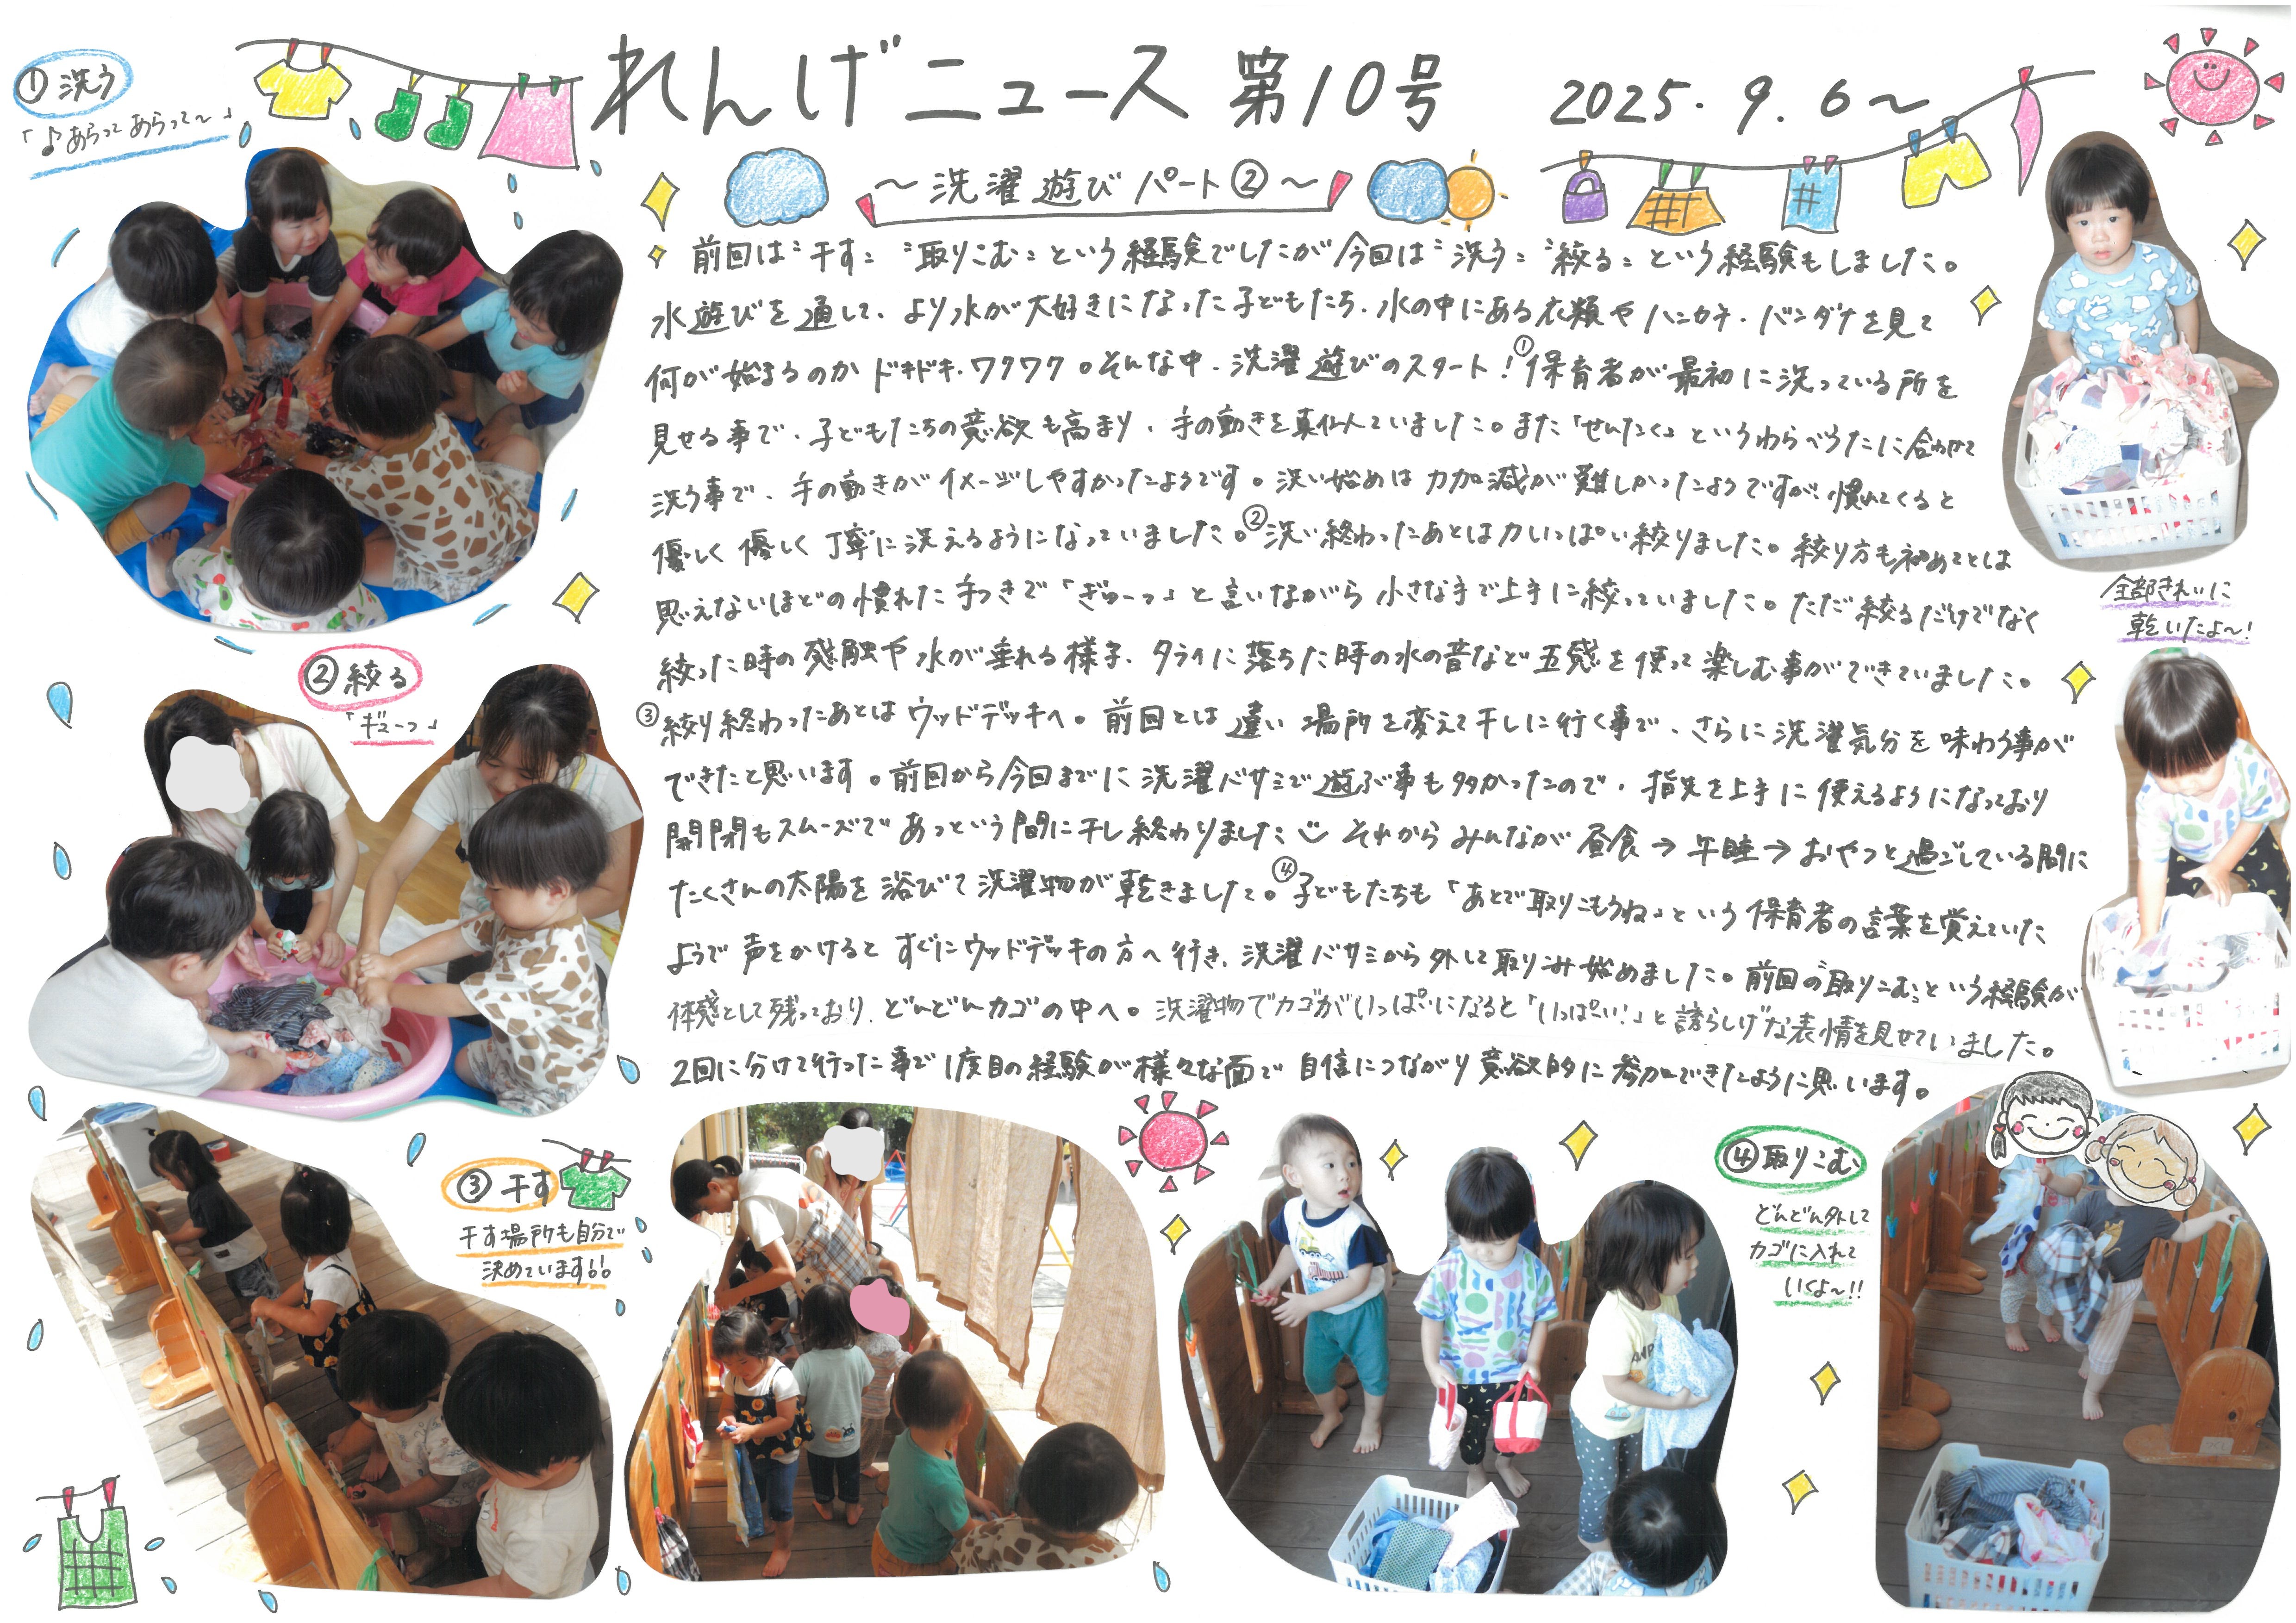 れんげニュース 第10号 2025.9.6～
～洗濯遊びパート②～
前回は"干す" "取りこむ"という経験でしたが今回は"洗う" "絞る"という経験もしました。
水遊びを通して、より水が大好きになった子どもたち、水の中にある衣類やハンカチ・バンダナを見て
何が始まるのかドキドキ、ワクワク。そんな中、洗濯遊びのスタート！①保育者が最初に洗っている所を
見せる事で、子どもたちの意欲も高まり、手の動きを真似ていました。また「せんたく」というわらべうたに合わせて
洗う事で、手の動きがイメージしやすかったようです。洗い始めは力加減が難しかったようですが慣れてくると
優しく優しく丁寧に洗えるようになっていました。②洗い終わったあとは力いっぱい絞りました。絞り方も初めてとは
思えないほどの慣れた手つきで「ぎゅーっ」と言いながら小さな手で上手に絞っていました。ただ絞るだけでなく
絞った時の感触や水が垂れる様子、タライに落ちた時の水の音など五感を使って楽しむ事ができていました。
③絞り終わったあとはウッドデッキへ。前回とは違い場所を変えて干しに行く事で、さらに洗濯気分を味わう事が
できたと思います。前回から今回までに洗濯バサミで遊ぶ事も多かったので、指先を上手に使えるようになっており
開閉もスムーズであっという間に干し終わりました それからみんなが昼食→午睡→おやつと過ごしている間に
たくさんの太陽を浴びて洗濯物が乾きました。④子どもたちも「あとで取りこもうね」という保育者の言葉を覚えていた
ようで声をかけるとすぐにウッドデッキの方へ行き、洗濯バサミから外して取りこみ始めました。前回の"取りこむ"という経験が
体感として残っており、どんどんカゴの中へ。洗濯物でカゴがいっぱいになると「いっぱーい！」と誇らしげな表情を見せていました。
2回に分けて行った事で1度目の経験が様々な面で自信につながり意欲的に参加できたように思います。
①洗う
「♪あらって あらって～」
②絞る
「ギューっ」
③干す
干す場所も自分で
決めています!!
④取りこむ
どんどん外して
カゴに入れて
いくよ～!!
全部きれいに
乾いたよ～!